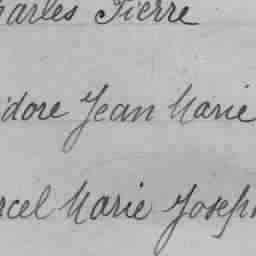 harles Pierre
idore Jean Marie
rcel Marie Joseph